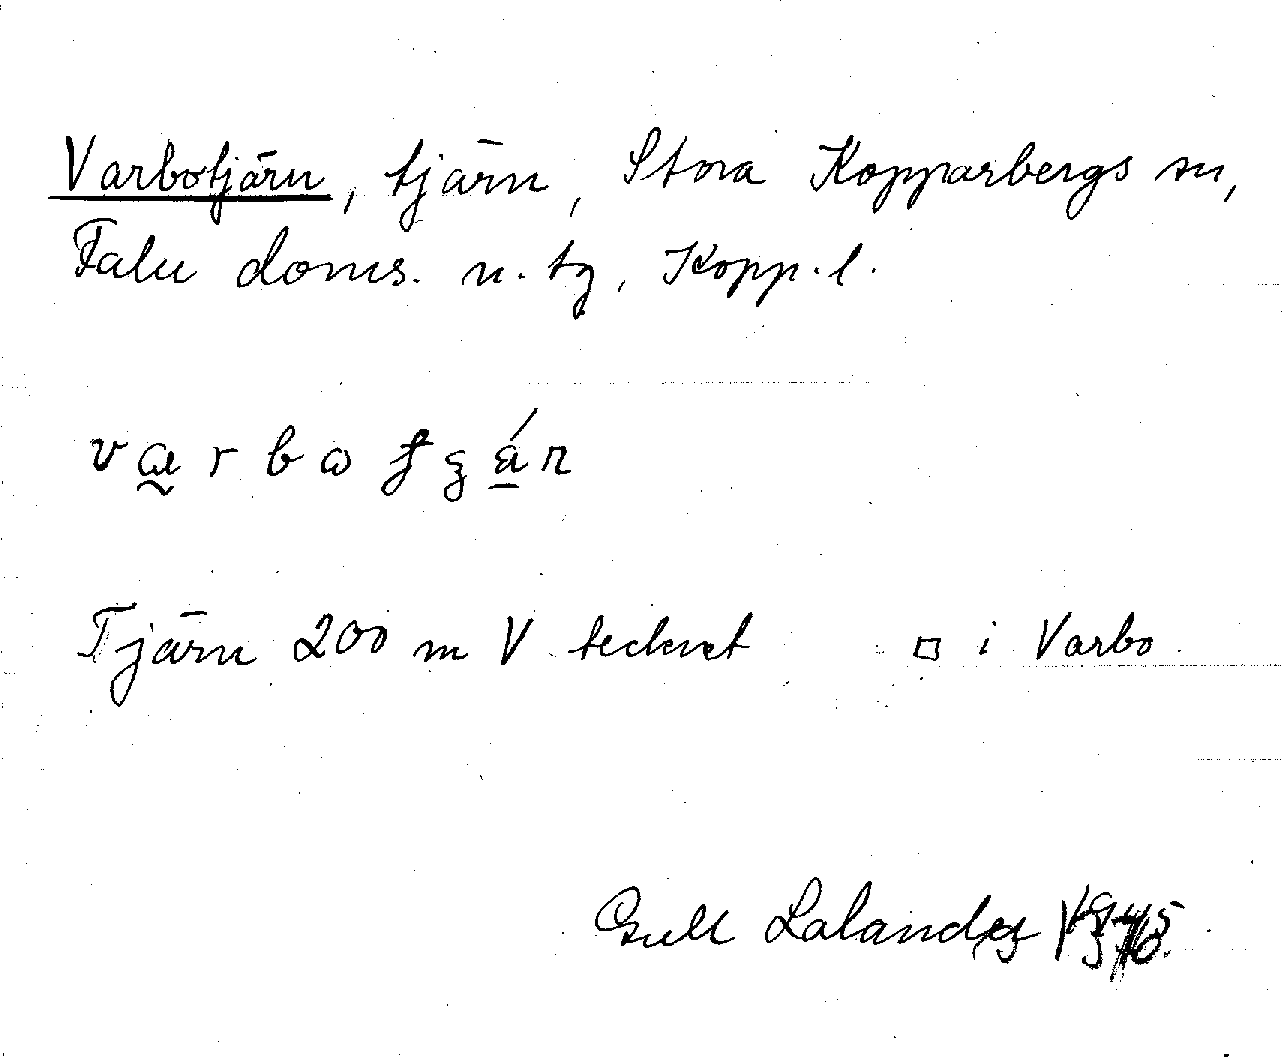 Varbotjärn, tjärn, Stora Kopparbergs sn,
Falu doms. n. tg, Kopp. l.
Tjärn 200 m V tecknet □ i Varbo.
Gull Lalander